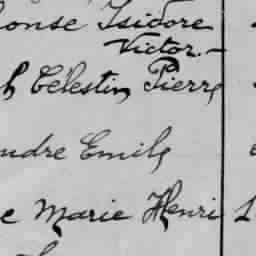 onse Isidore
Victor.-
h Célestin Pierre
ndre Emile
e Marie Henri